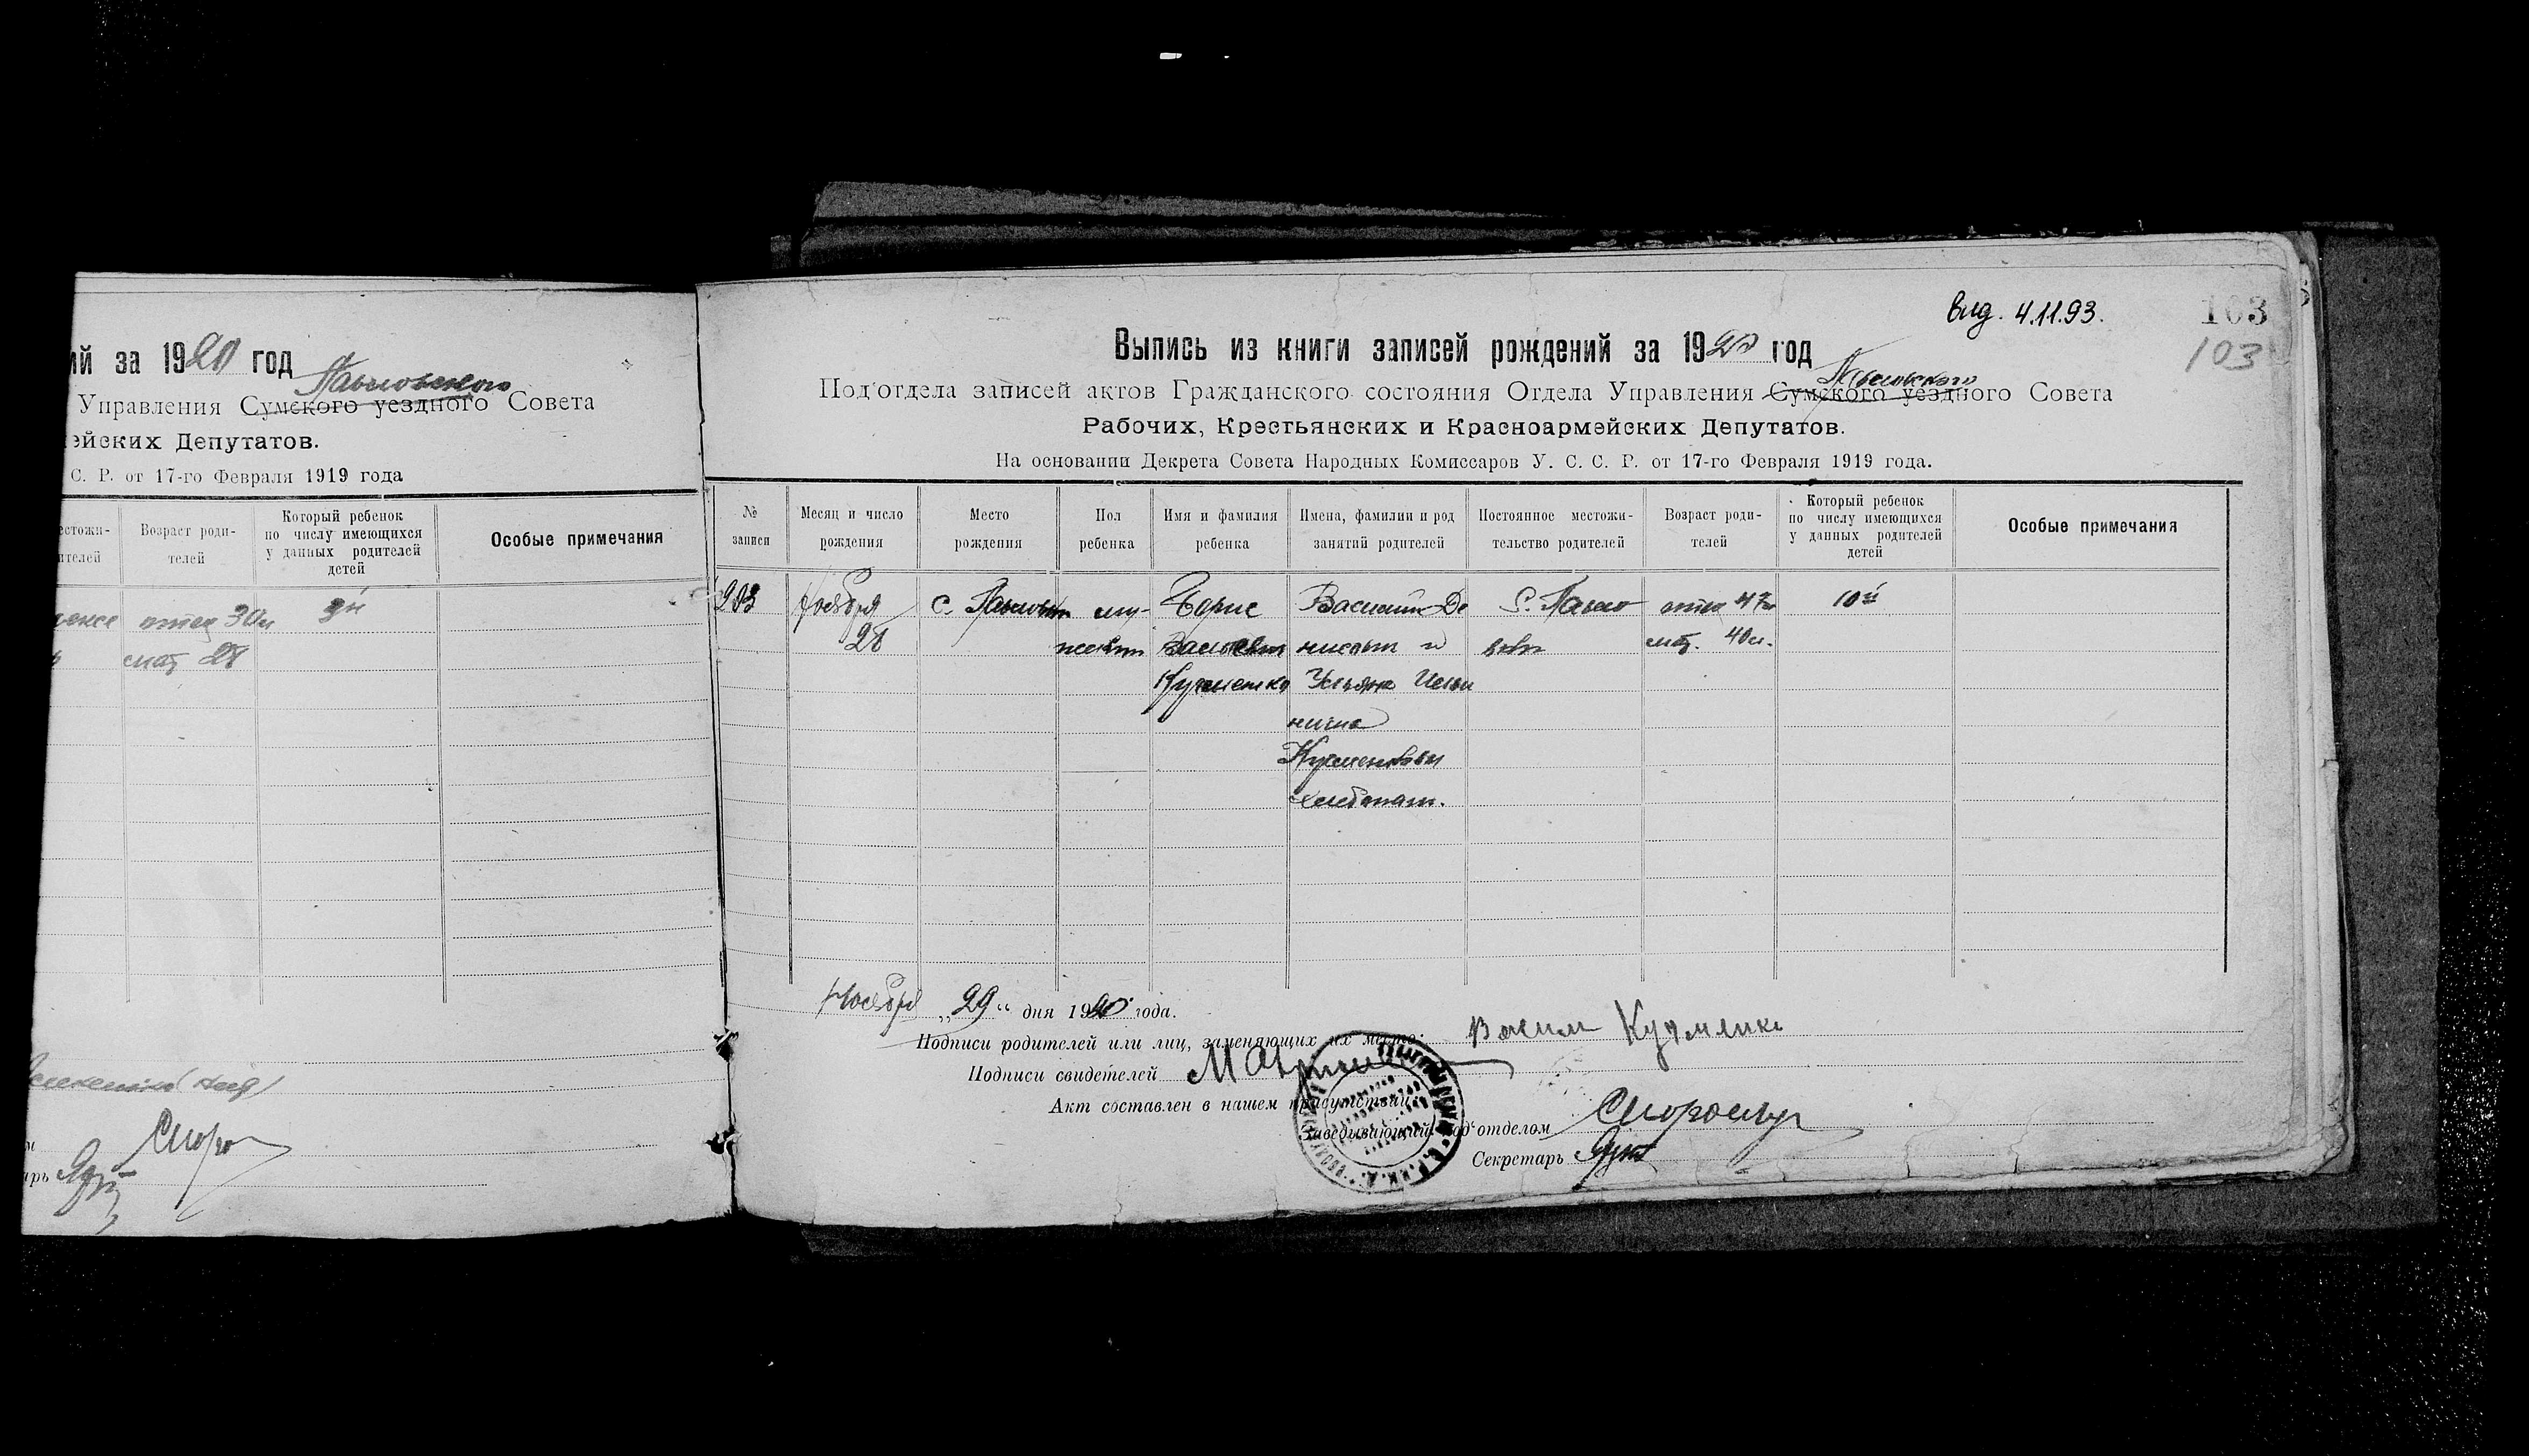 ий за 1920 год
Павловского
Управления Сумского уездного Совета
ейских Депутатов.
С. Р. от 17-го Февраля 1919 года
естожи-
ителей
Возраст роди-
телей
Который ребенок
по числу имеющихся
у данных родителей
детей
Особые примечания
отец 30л
3й
мат 28
Скоро
вид. 4.11.93.
103
103
Выпись из книги записей рождений за 1920 год
Павловского
Под'отдела записей актов Гражданского состояния Отдела Управления Сумского уездного Совета
Рабочих, Крестьянских и Красноармейских Депутатов.
На основании Декрета Совета Народных Комиссаров У. С. С. Р. от 17-го Февраля 1919 года.
№
записи
Месяц и число
рождения
Место
рождения
Пол
ребенка
Имя и фамилия
ребенка
Имена, фамилии и род
занятий родителей
Постоянное местожи-
тельство родителей
Возраст роди-
телей
Который ребенок
по числу имеющихся
у данных родителей
детей
Особые примечания
293
Ноября
28
с. Павловки
му-
жеский
Борис
Васильевич
Кузменко
Василий Де
нисович и
Ульяна Ильи
нична
Кузменковы
хлебопаш.
С. Павло
вки
отец 47л
мат. 40л.
10й
Ноября „29“ дня 1920 года.
Подписи родителей или лиц, заменяющих их место: Васили Кузменко
Подписи свидетелей
Акт составлен в нашем присутствии:
Заведывающий Под'отделом
Секретарь